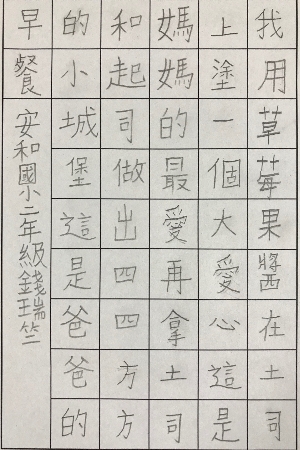 我用草莓果將在土司
上塗一個大愛心這是
媽媽的最愛再拿土司
和起司做出四四方方
的小城堡這是爸爸的
早餐
安和國小二年級錢瑞竺